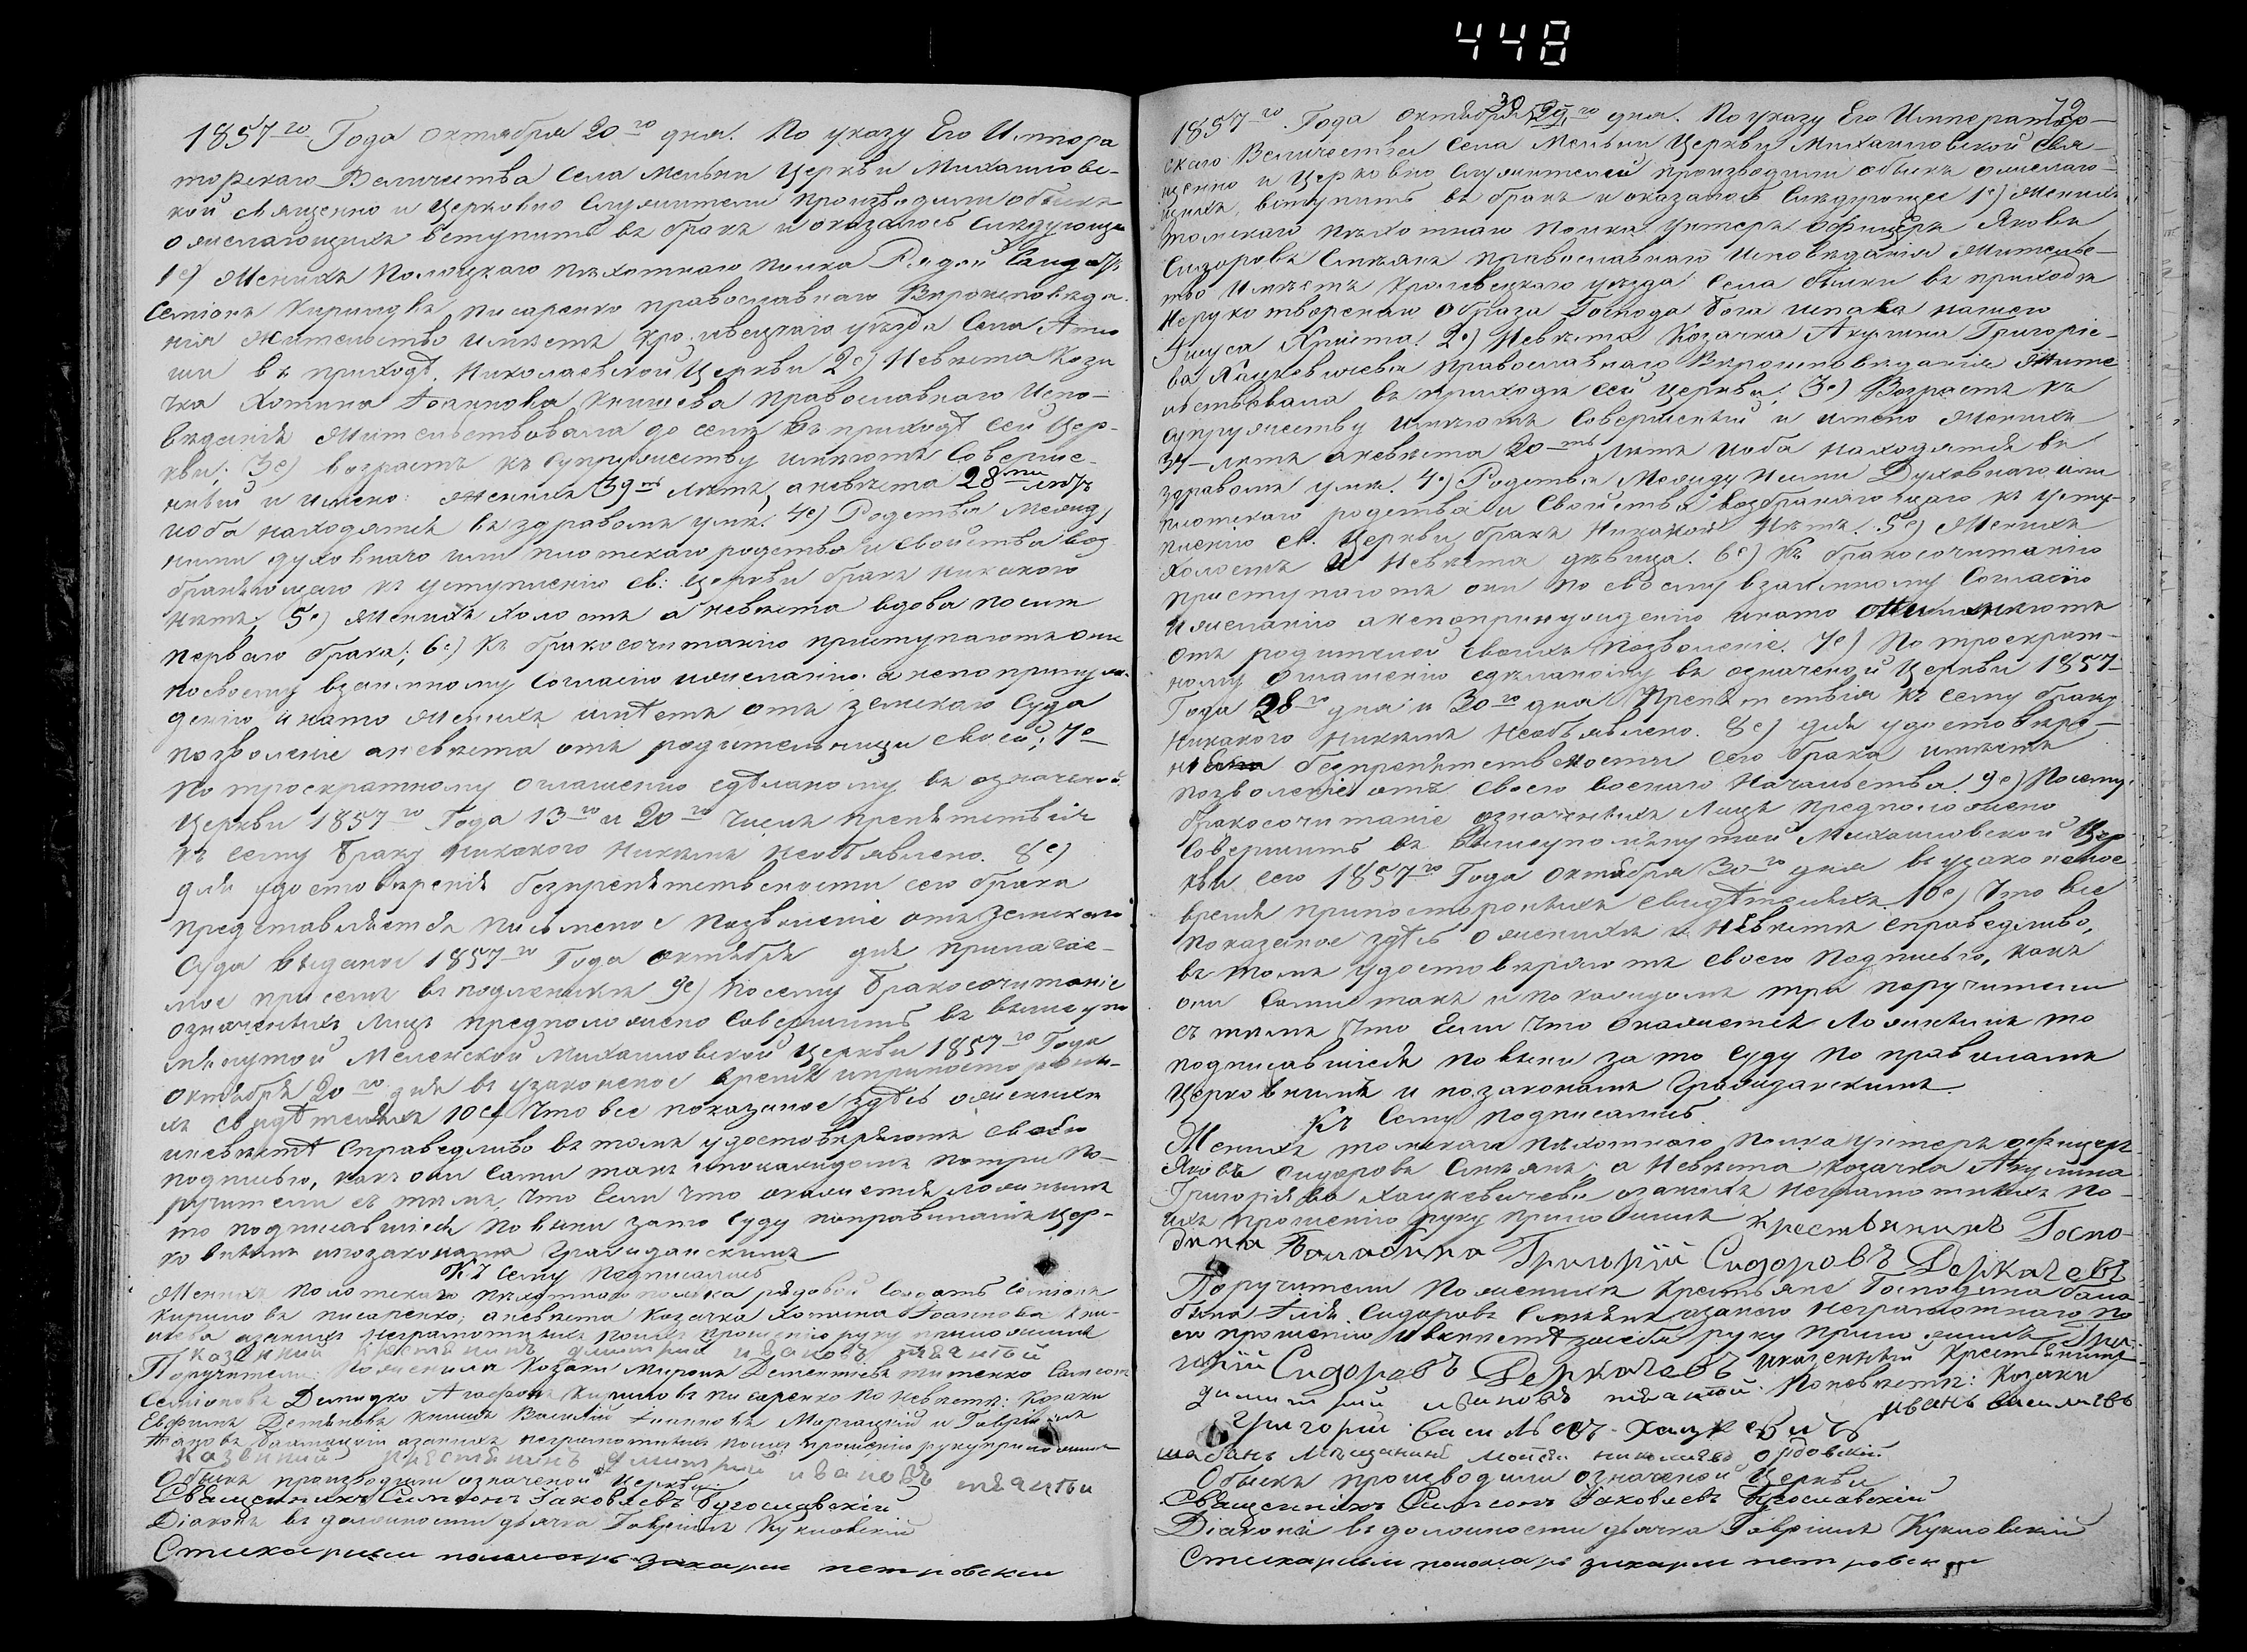 448
1857 го Года октября 20 го дня. По указу Его Импера
торскаго Величества села Мельни Церкви Михайловс-
кой священно и церковно служители производили обыскъ
о желающихъ вступить въ бракъ и оказалось следующее
1е) Женихъ Полоцкаго пѣхотнаго полка Рядой Солдатъ
Семіонъ Кириловъ писаренко православнаго Вѣроисповѣда-
нія жительство имѣетъ Кролевецкаго уѣзда Села
въ приходѣ Николаевской Церкви 2е) Невѣста Коза
чка Хотина Іоаннова Книшева православнаго Испо-
вѣданія жительствовала до селѣ въ приходѣ сей Цер-
кви; 3е) возрастъ къ супружеству имѣютъ соверше-
нный и имено: женихъ 39 ть лѣтъ, а невѣста 28 ми лѣтъ
иоба находятся въ здравомъ умѣ. 4е) Родства между
ними духовнаго или плотскаго родства и свойства воз
браняющаго къ уступленію св: церкви бракъ никакого
нѣтъ; 5е) женихъ холостъ а невѣста вдова послѣ
перваго брака; 6е) Къ бракосочитанію приступаютъ они
по своему взаимному согласію ижеланію. а непопринуж-
денію инато женихъ имѣетъ отъ земскаго Суда
позволеніе а невѣста отъ родительницы своей; 7е
По троекратному оглашенію сдѣланому въ означеной
Церкви 1857 го Года 13 го и 20 го числѣ препятствія
къ сему браку никакого никемъ необъявлено. 8е)
для удостовѣренія безпрепятствености сего брака
представляется письменое позволеніе отъ Земскаго
Суда выданое 1857 го Года октября дня прилагае-
мое присемъ въ подленикѣ 9е) посему бракосочитаніе
означеныхъ лицъ предположено совершить въ вышеупо
мянутой Меленской Михайловской Церкви 1857 го Года
октября 20 го дня въ узаконеное время припосторонны-
хъ свидѣтеляхъ 10е) Что все показаное здѣсь о женихѣ
иневѣстѣ справедливо въ томъ удостовѣряютъ своею
подписью, какъ они сами такъ ипокаждомъ потри по-
ручители съ тѣмъ, что если что окажется ложнымъ
то подписавшіеся повины зато суду поправиламъ цер-
ковнымъ ипозаконамъ Гражданскимъ
Къ сему подписались
Женихъ Полоцкаго пѣхотнаго полка рядовой Солдатъ Семіонъ
Кириловъ писаренко; аневѣста козачка Хотина Іоаннова Кни-
шева азанихъ неграмотныхъ поихъ прошенію руку приложилъ
казенний крестянинъ димитрий ивановъ
Поручители: Поженихѣ Козаки Миронъ Дементіевъ
Семіоновъ Демидко Агафонъ Кириловъ писаренко по невѣстѣ: Козаки
Евфимъ Демяновъ книшъ Василій Іоанновъ и Гавріилъ
азанихъ неграмотныхъ поихъ прошенію рукуприложилъ
казенний крестянинъ димитрий ивановъ
Обыскъ производили означеной Церкви
Священникъ Симеонъ Іаковлевъ Бугославскій
Діаконъ въ должности дьячка Гавріилъ Кукловскій
Стихарный пономарь захарии петровский
72
1857 го Года октября 30 го дня. По указу Его Император-
скаго Величества Села Мельни Церкви Михайловской Свя-
щенно и Церковно Служители производили обыскъ о желаю-
щихъ, вступить въ бракъ и оказалось Слѣдующее 1е) Женихъ
Томскаго пѣхотнаго полка унтеръ офицеръ Яковъ
Сидоровъ православнаго исповѣданія жительс-
тво имѣетъ Кролевецкаго уезда Села въ приходѣ
Нерукотвореннаго Образа Господа Бога спаса нашего
Іисуса Христа. 2е) Невѣста Козачка Акулина Григоріе-
ва Хацкевичева православнаго Вѣроисповѣданія жите
льствовала въ приходѣ сей церкви. 3е) Возрастъ къ
супружеству имѣютъ Совершеный и имено женихъ
лѣтъ а невѣста 20 ть лѣтъ иоба находятся въ
здравомъ умѣ. 4е) Родства Между Ними Духовнаго или
плотскаго родства и свойства возбраняющаго къ усту-
пленію св. Церкви бракъ никакой нѣтъ. 5е) Женихъ
Холостъ И Невѣста дѣвица. 6е) Къ бракосочитанію
приступаютъ они по своему взаимному Согласію
ижеланію анепопринужденію инато
отъ родителей своихъ позволеніе. 7е) По троекрат-
ному оглашенію сдѣланому въ означеной Церкви 1857
Года 28 го дня и 30 го дня Препятствія къ сему браку
никакого никемъ необъявлено. 8е) для удостовѣре-
нія безпрепятствености сего брака имѣетъ
позволеніе отъ своего военаго Начальства. 9е) Посему
бракосочитаніе означеныхъ Лицъ предположено
Совершить въ вышеупомянутой Михайловской Цер
кви сего 1857 го Года октября 30 го дня въ узаконеное
время припостороннихъ свидѣтеляхъ. 10е) Что все
показаное здѣсь о женихѣ и невѣстѣ справедливо,
въ томъ удостовѣряютъ своею подписью, какъ
они сами такъ и покаждомъ три поручители
съ тѣмъ что если что окажется ложнымъ то
подписавшіеся повины зато суду по правиламъ
Церковнимъ и позаконамъ Гражданскимъ.
Къ Сему подписались
Женихъ томскаго пѣхотнаго полка унтеръ офицеръ
Яковъ Сидоровъ а Невѣста козачка Акулина
Григоріева Хацкевичева азанихъ неграмотныхъ по-
ихъ прошенію руку приложилъ крестьянинъ Госпо-
дина Балабина Григорій Сидоровъ Деркачевъ
Поручители Поженихѣ крестьяне Господина Бала-
бина Сидоровъ азанего неграмотнаго по
его прошенію руку приложилъ Гри-
горій Сидоровъ Деркачевъ иказенный крестьянинъ
димитрий ивановъ Поневѣстѣ: Козаки
григорий васильевъ Хацкевичъ иванъ васильевъ
мѣщанинъ
Обыскъ производили означеной Церкви
Священникъ Симеонъ Іаковлевъ Бугославскій
Діаконъ въ должности дьячка Гавріилъ Кукловскій
Стихарный пономарь захарии петровский